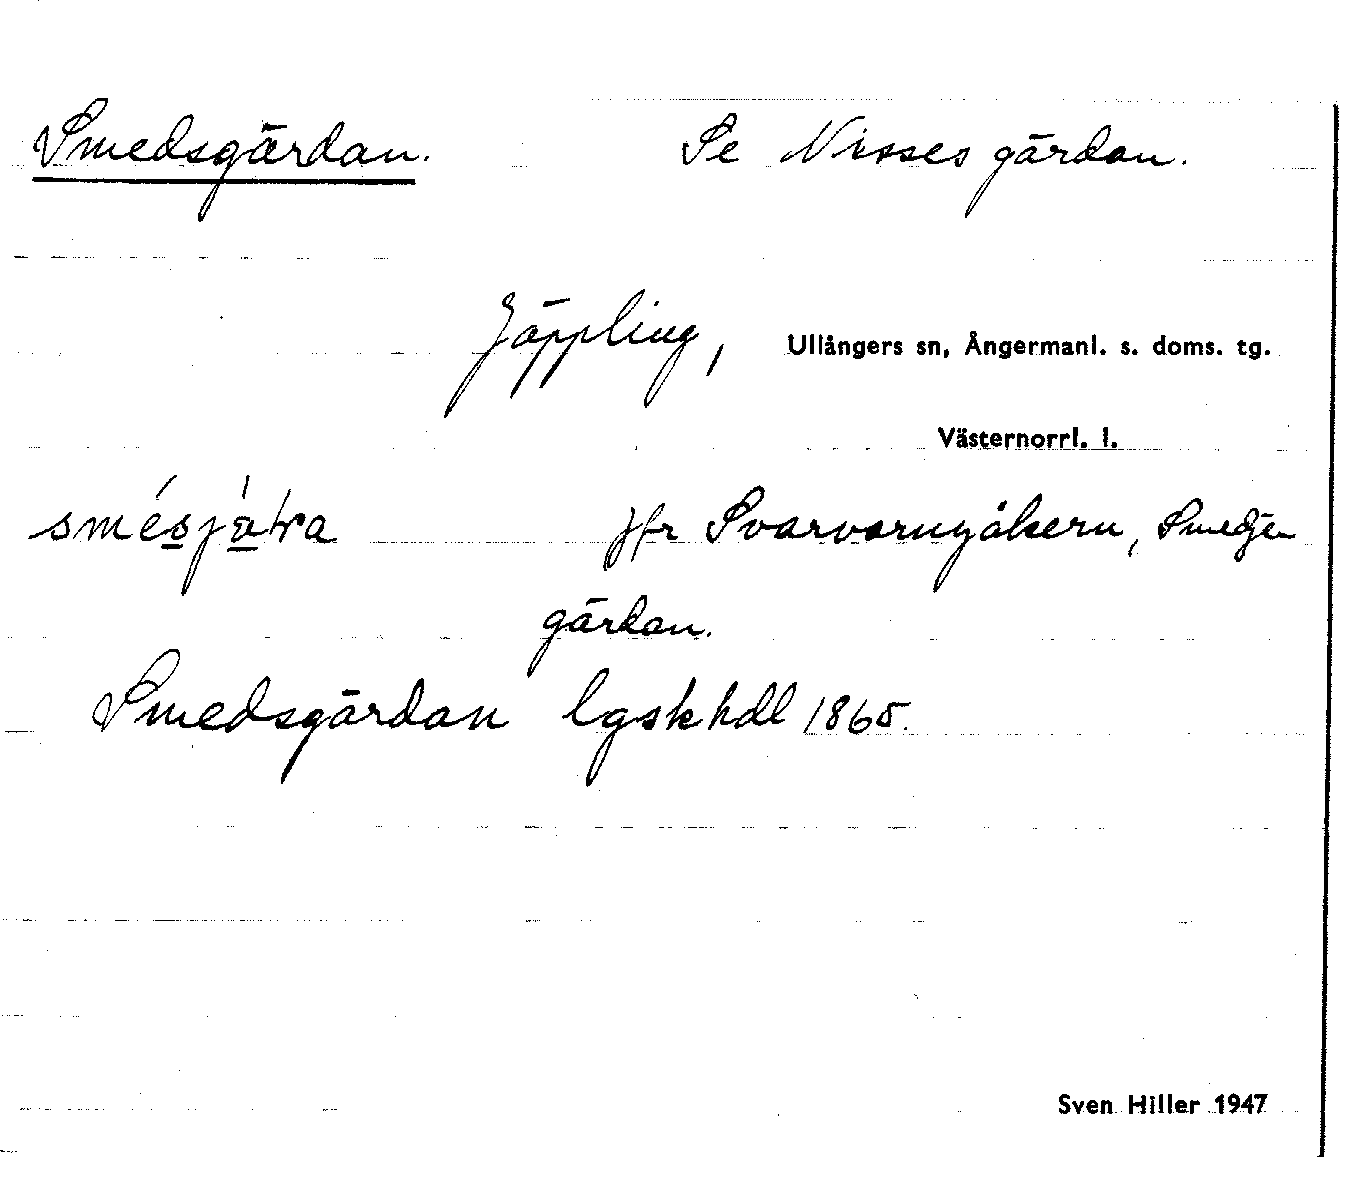 Smedsgärdan. Se Nissesgärdan.
Jäppling, Ullångers sn, Ångermanl. s. doms. tg.
Västernorrl. l.
jfr Svarvarnyåkern, Smedje
gärdan.
Smedsgärdan lgskhdl 1865.
Sven Hiller 1947